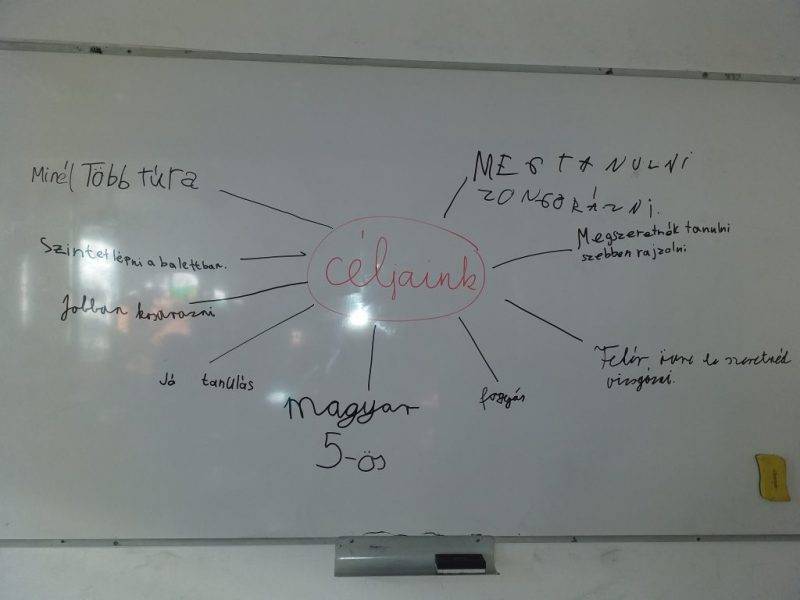 Minél Több túra
MEGTANULNI
ZONGORÁZNI.
Szintet lépni a balettban.
céljaink
Megszeretnék tanulni
szebben rajzolni
Jobban kosarazni
Jó tanulás
magyar
5-ös
fogyás
Fehér övre le szeretnéd
vizsgázni.